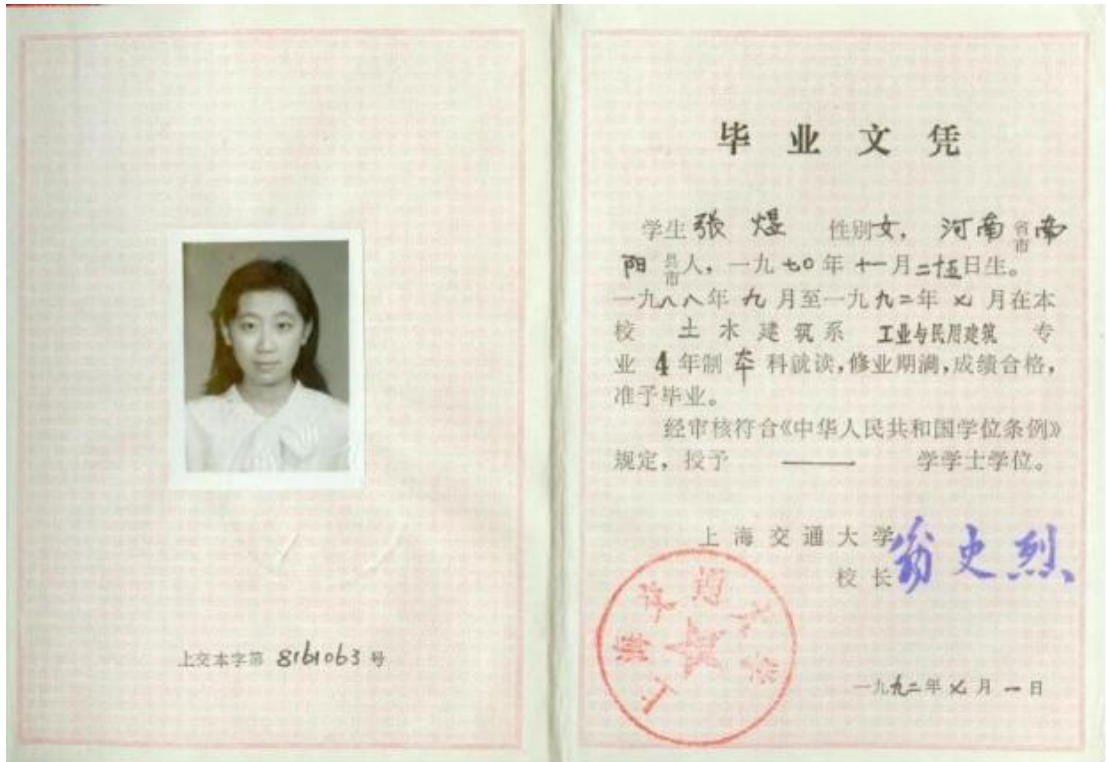 上交本字第 8161063 号
毕业文凭
学生 张煜 性别 女， 河南 省市 南
阳 县市 人，一九七0年十一月二十五日生。
一九八八年九月至一九九二年七月在本
校 土木建筑系 工业与民用建筑 专
业 4 年制 本 科就读，修业期满，成绩合格，
准予毕业。
经审核符合《中华人民共和国学位条例》
规定，授予 —— 学学士学位。
上海交通大学
校长 翁史烈
上海交通大学
一九九二年七月一日